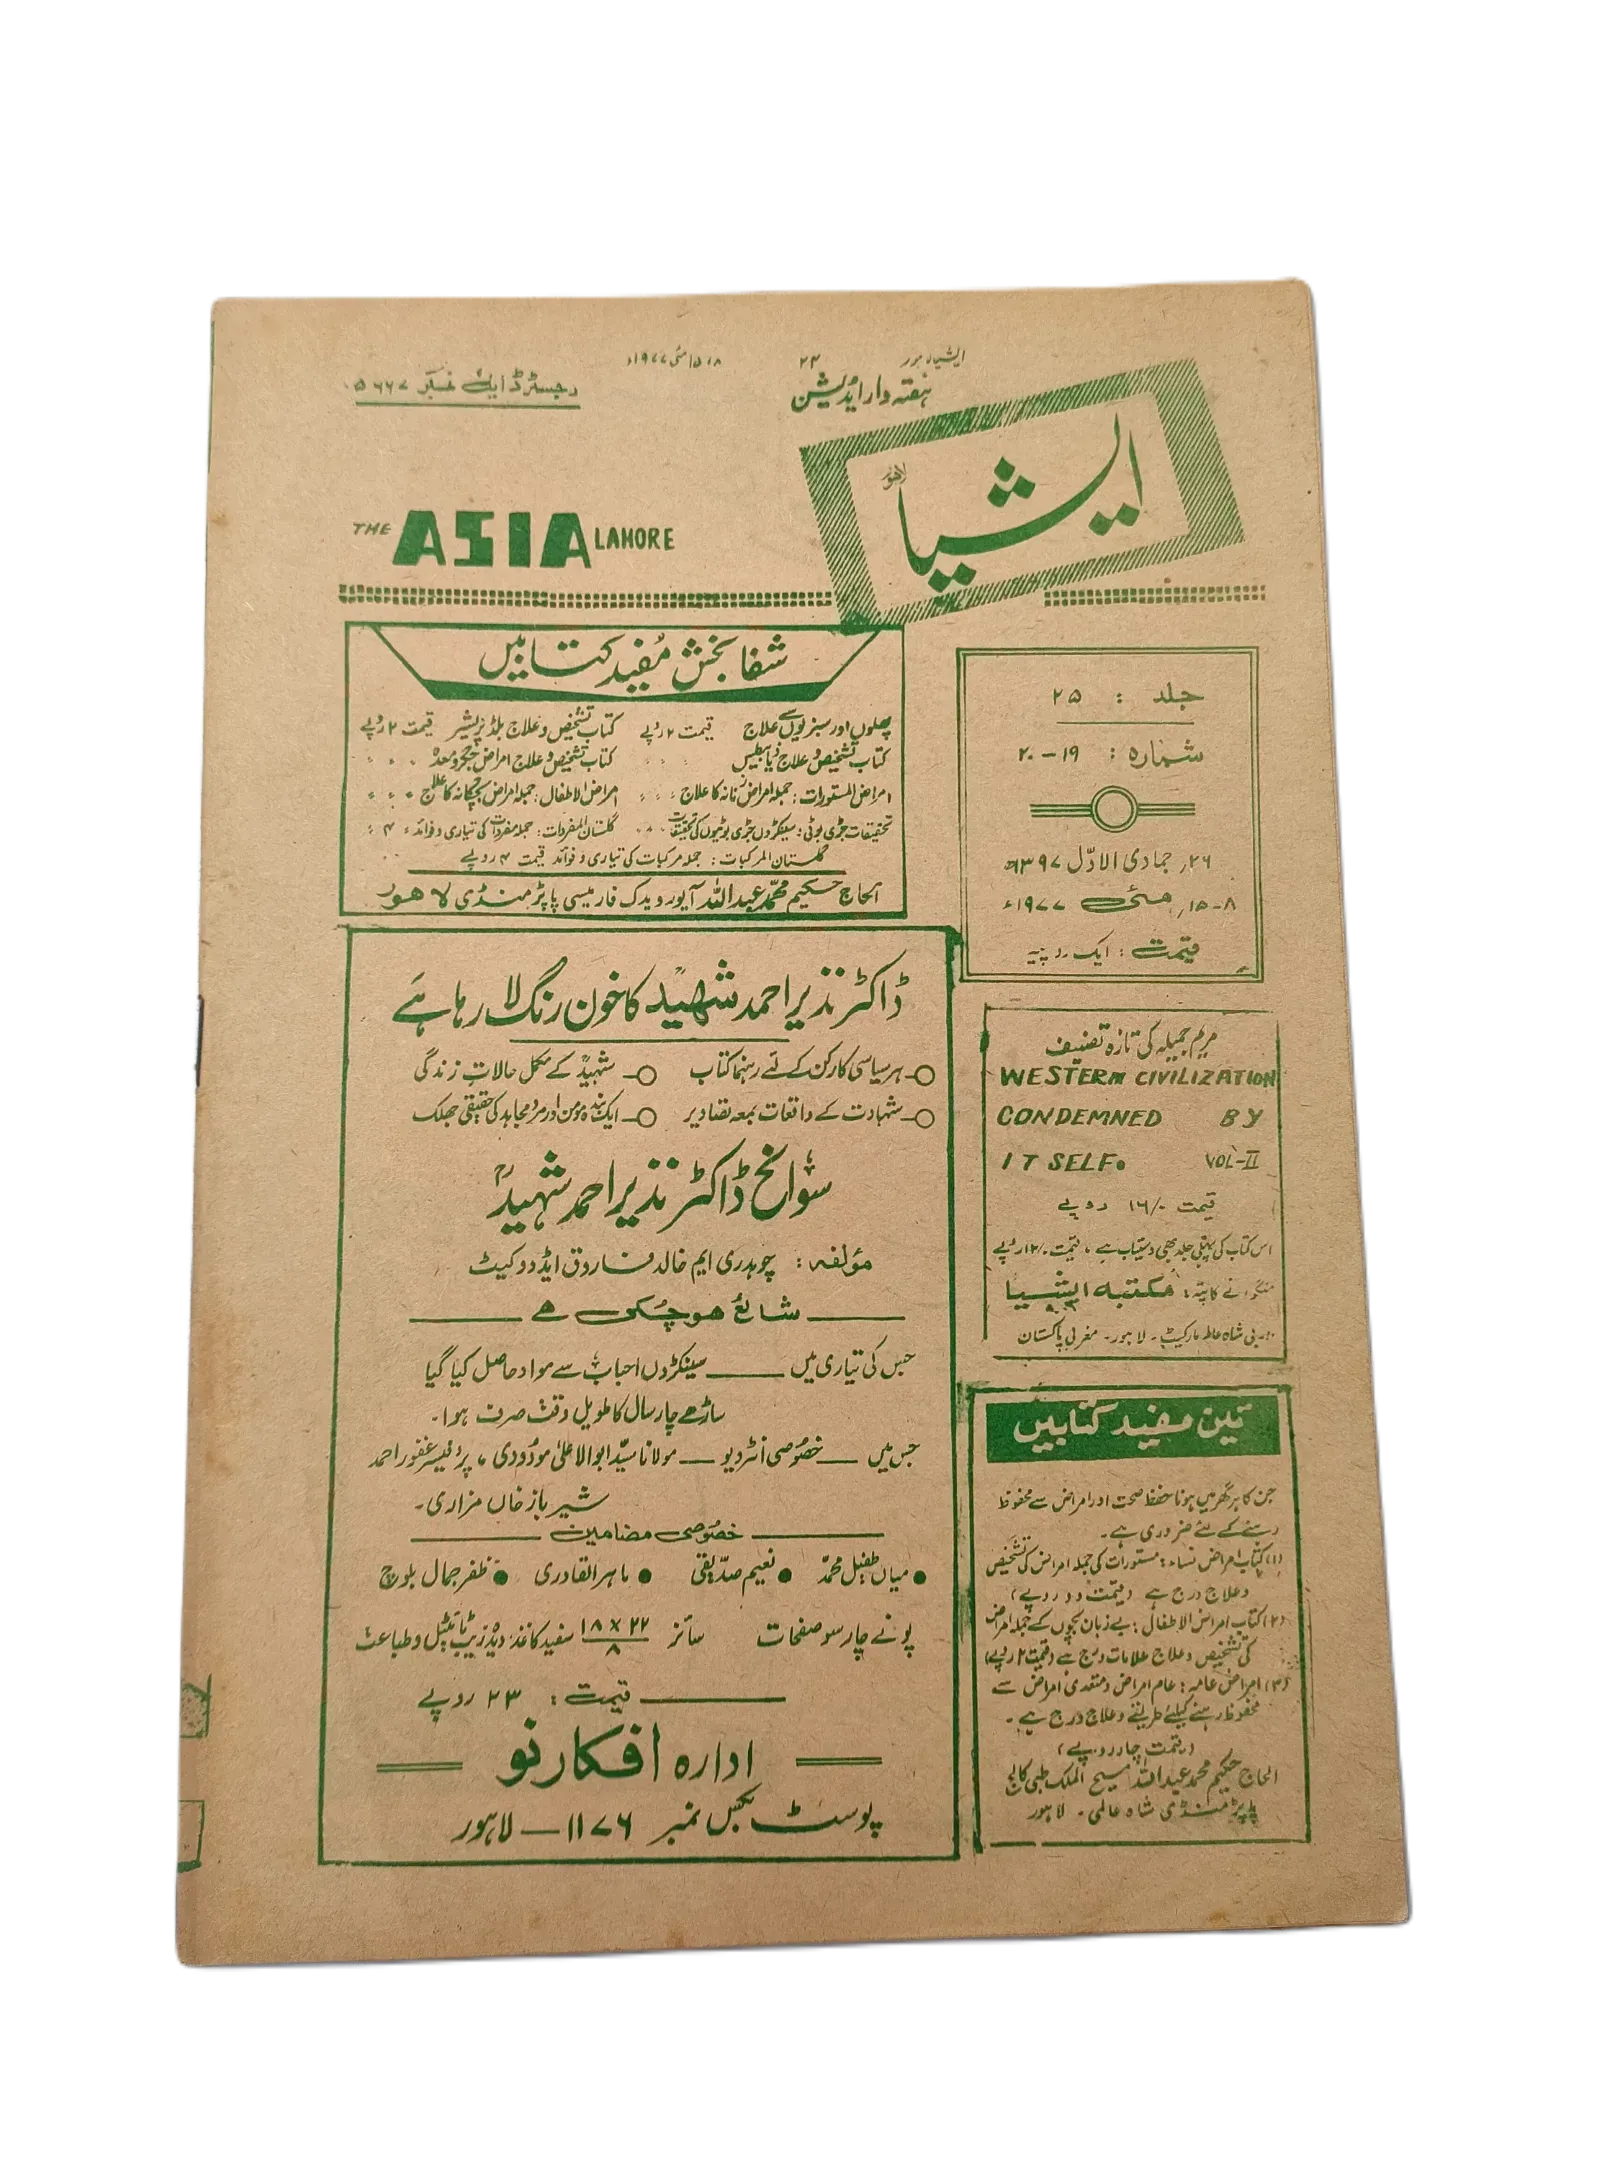 ایشیا لاہور ۲۴ ۸، ۱۵ مئی ۱۹۷۷ء
ہفتہ وار ایڈیشن
رجسٹرڈ ایل نمبر ۵۶۶۷
ایشیا
لاہور
THE ASIA LAHORE
جلد : ۲۵
شمارہ : ۱۹-۲۰
۲۶, جمادی الاوّل ۱۳۹۷ھ
۸-۱۵, مئی ۱۹۷۷ء
قیمت : ایک روپیہ
شفا بخش مفید کتابیں
پھلوں اور سبزیوں سے علاج قیمت ۲ روپے
کتاب تشخیص و علاج بلڈ پریشر قیمت ۲ روپے
کتاب تشخیص و علاج ذیابیطیس
کتاب تشخیص و علاج امراض جگر و معدہ
امراض المستورات : جملہ امراض زنانہ کا علاج
امراض الاطفال : جملہ امراض بچگانہ کا علاج
تحقیقات جڑی بوٹی : سیکڑوں جڑی بوٹیوں کی تحقیقات
گلستان المفردات : جملہ مفردات کی تیاری و فوائد ۴
گلستان المرکبات : جملہ مرکبات کی تیاری و فوائد قیمت ۴ روپے
الحاج حکیم محمد عبداللہ آیورویدک فارمیسی پاپڑ منڈی لاہور
ڈاکٹر نذیر احمد شہیدؒ کا خون رنگ لا رہا ہے
ہر سیاسی کارکن کے لئے رہنما کتاب
شہیدؒ کے مکمل حالاتِ زندگی
شہادت کے واقعات بمعہ تصاویر
ایک بندہ مومن اور مرد مجاہد کی حقیقی جھلک
سوانح ڈاکٹر نذیر احمد شہیدؒ
مؤلفہ : چوہدری ایم خالد فاروق ایڈووکیٹ
شائع ہو چکی ہے
جس کی تیاری میں — سینکڑوں احباب سے مواد حاصل کیا گیا
ساڑھے چار سال کا طویل وقت صرف ہوا۔
جس میں — خصوصی انٹرویو — مولانا سیّد ابوالاعلیٰ مودودی، پروفیسر غفور احمد
شیر باز خاں مزاری۔
خصوصی مضامین
● میاں طفیل محمدؐ ● نعیم صدّیقی ● ماہر القادری ● ظفر جمال بلوچ
پونے چار سو صفحات سائز ۲۲×۱۸/۸ سفید کاغذ، دیدہ زیب ٹائیٹل و طباعت
قیمت : ۲۳ روپے
ادارہ افکارِ نو
پوسٹ بکس نمبر ۱۱۷۶ — لاہور
مریم جمیلہ کی تازہ تصنیف
WESTERN CIVILIZATION
CONDEMNED BY
ITSELF. VOL-II
قیمت ۱۶/۰ روپے
اس کتاب کی پہلی جلد بھی دستیاب ہے، قیمت ۱۲/۰ روپے
منگوانے کا پتہ : مکتبہ ایشیا
۱۰-بی شاہ عالم مارکیٹ۔ لاہور۔ مغربی پاکستان
تین مفید کتابیں
جن کا ہر گھر میں ہونا حفظ صحت اور امراض سے محفوظ
رہنے کے لئے ضروری ہے۔
(۱) کتاب امراض نساء : مستورات کی جملہ امراض کی تشخیص
و علاج درج ہے (قیمت دو روپے)
(۲) کتاب امراض الاطفال : بے زبان بچوں کے جملہ امراض
کی تشخیص و علاج علامات درج ہے (قیمت ۲ روپے)
(۳) امراض عامہ : عام امراض و متعدی امراض سے
محفوظ رہنے کیلئے طریقے و علاج درج ہے۔
(قیمت چار روپے)
الحاج حکیم محمد عبداللہ مسیح الملک طبی کالج
پاپڑ منڈی شاہ عالمی۔ لاہور